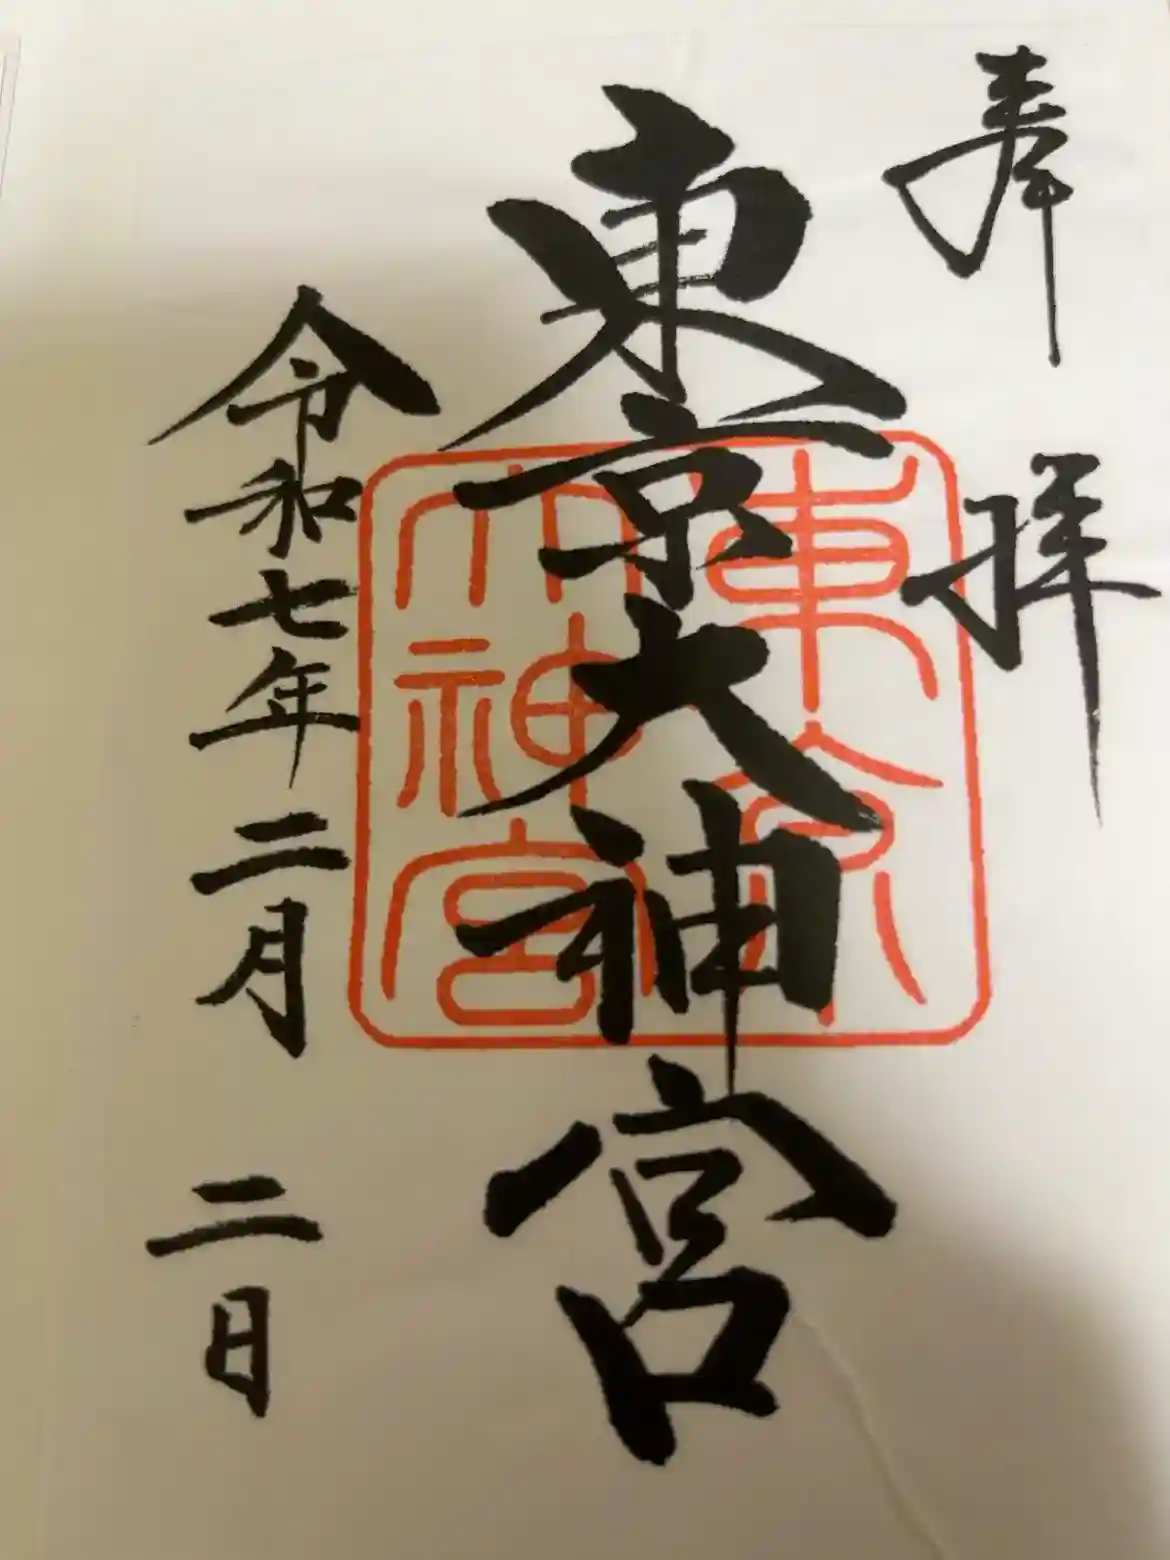 奉拝
東京大神宮
東京
大神宮
令和七年二月二日